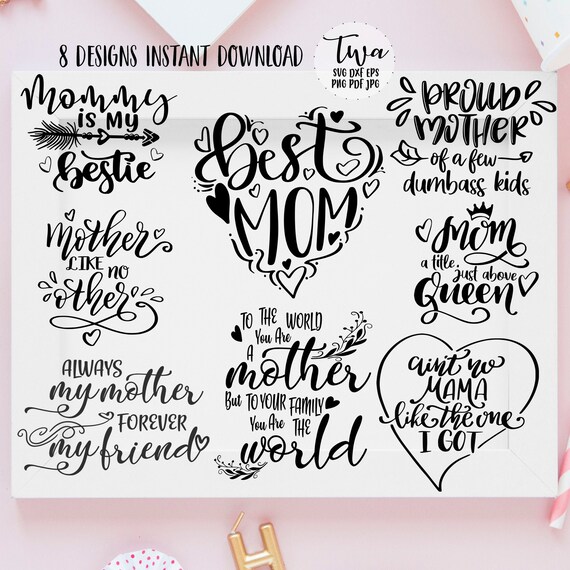 8 DESIGNS INSTANT DOWNLOAD
Twa
SVG DXF EPS
PNG PDF JPG
Mommy
is my
bestie
best
MOM
PROUD
MOTHER
of a few
dumbass kids
Mother
LIKE NO
other
Mom
a title
just above
Queen
ALWAYS
my mother
FOREVER
my friend
TO THE WORLD
You Are
A
mother
But TO YOUR FAMILY
You Are THE
world
ain't no
MAMA
like the one
I GOT